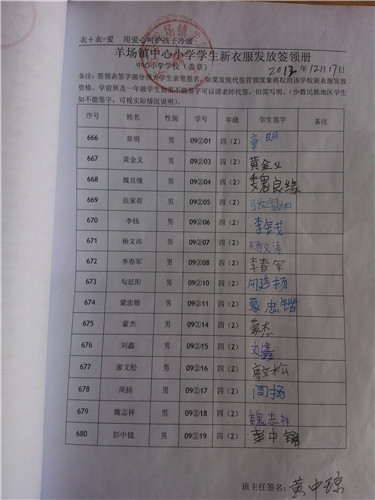 衣+衣=爱 用爱心呵护孩子冷暖
羊场镇中心小学学生新衣服发放签领册
中心小学学校(盖章) 2012年12月17日
备注:签领表签字部分须为学生亲笔签名,如果发现代签冒领现象将取消该学校新衣服发放
资格,学前班及一年级学生如果不能签字可以请老师代签,但需写明。(少数民族地区学生
如不能签字,可视实际情况说明)。
序号 姓名 性别 学号 年级 学生签字 备注
666 章明 男 09②01 四(2) 章明
667 黄金义 男 09②03 四(2) 黄金义
668 魏良缘 男 09②04 四(2) 魏良缘
669 张家荷 男 09②05 四(2)
670 李钱 男 09②06 四(2)
671 杨文涛 男 09②07 四(2) 杨文涛
672 李春军 男 09②08 四(2) 李春军
673 勾廷阳 男 09②10 四(2)
674 蒙忠锴 男 09②11 四(2) 蒙忠锴
675 蒙杰 男 09②14 四(2) 蒙杰
676 刘鑫 男 09②15 四(2) 刘鑫
677 廖文松 男 09②16 四(2)
678 周扬 男 09②17 四(2) 周扬
679 魏志祥 男 09②18 四(2) 魏志祥
680 彭中镇 男 09②19 四(2) 彭中镇
班主任签名:黄中琼